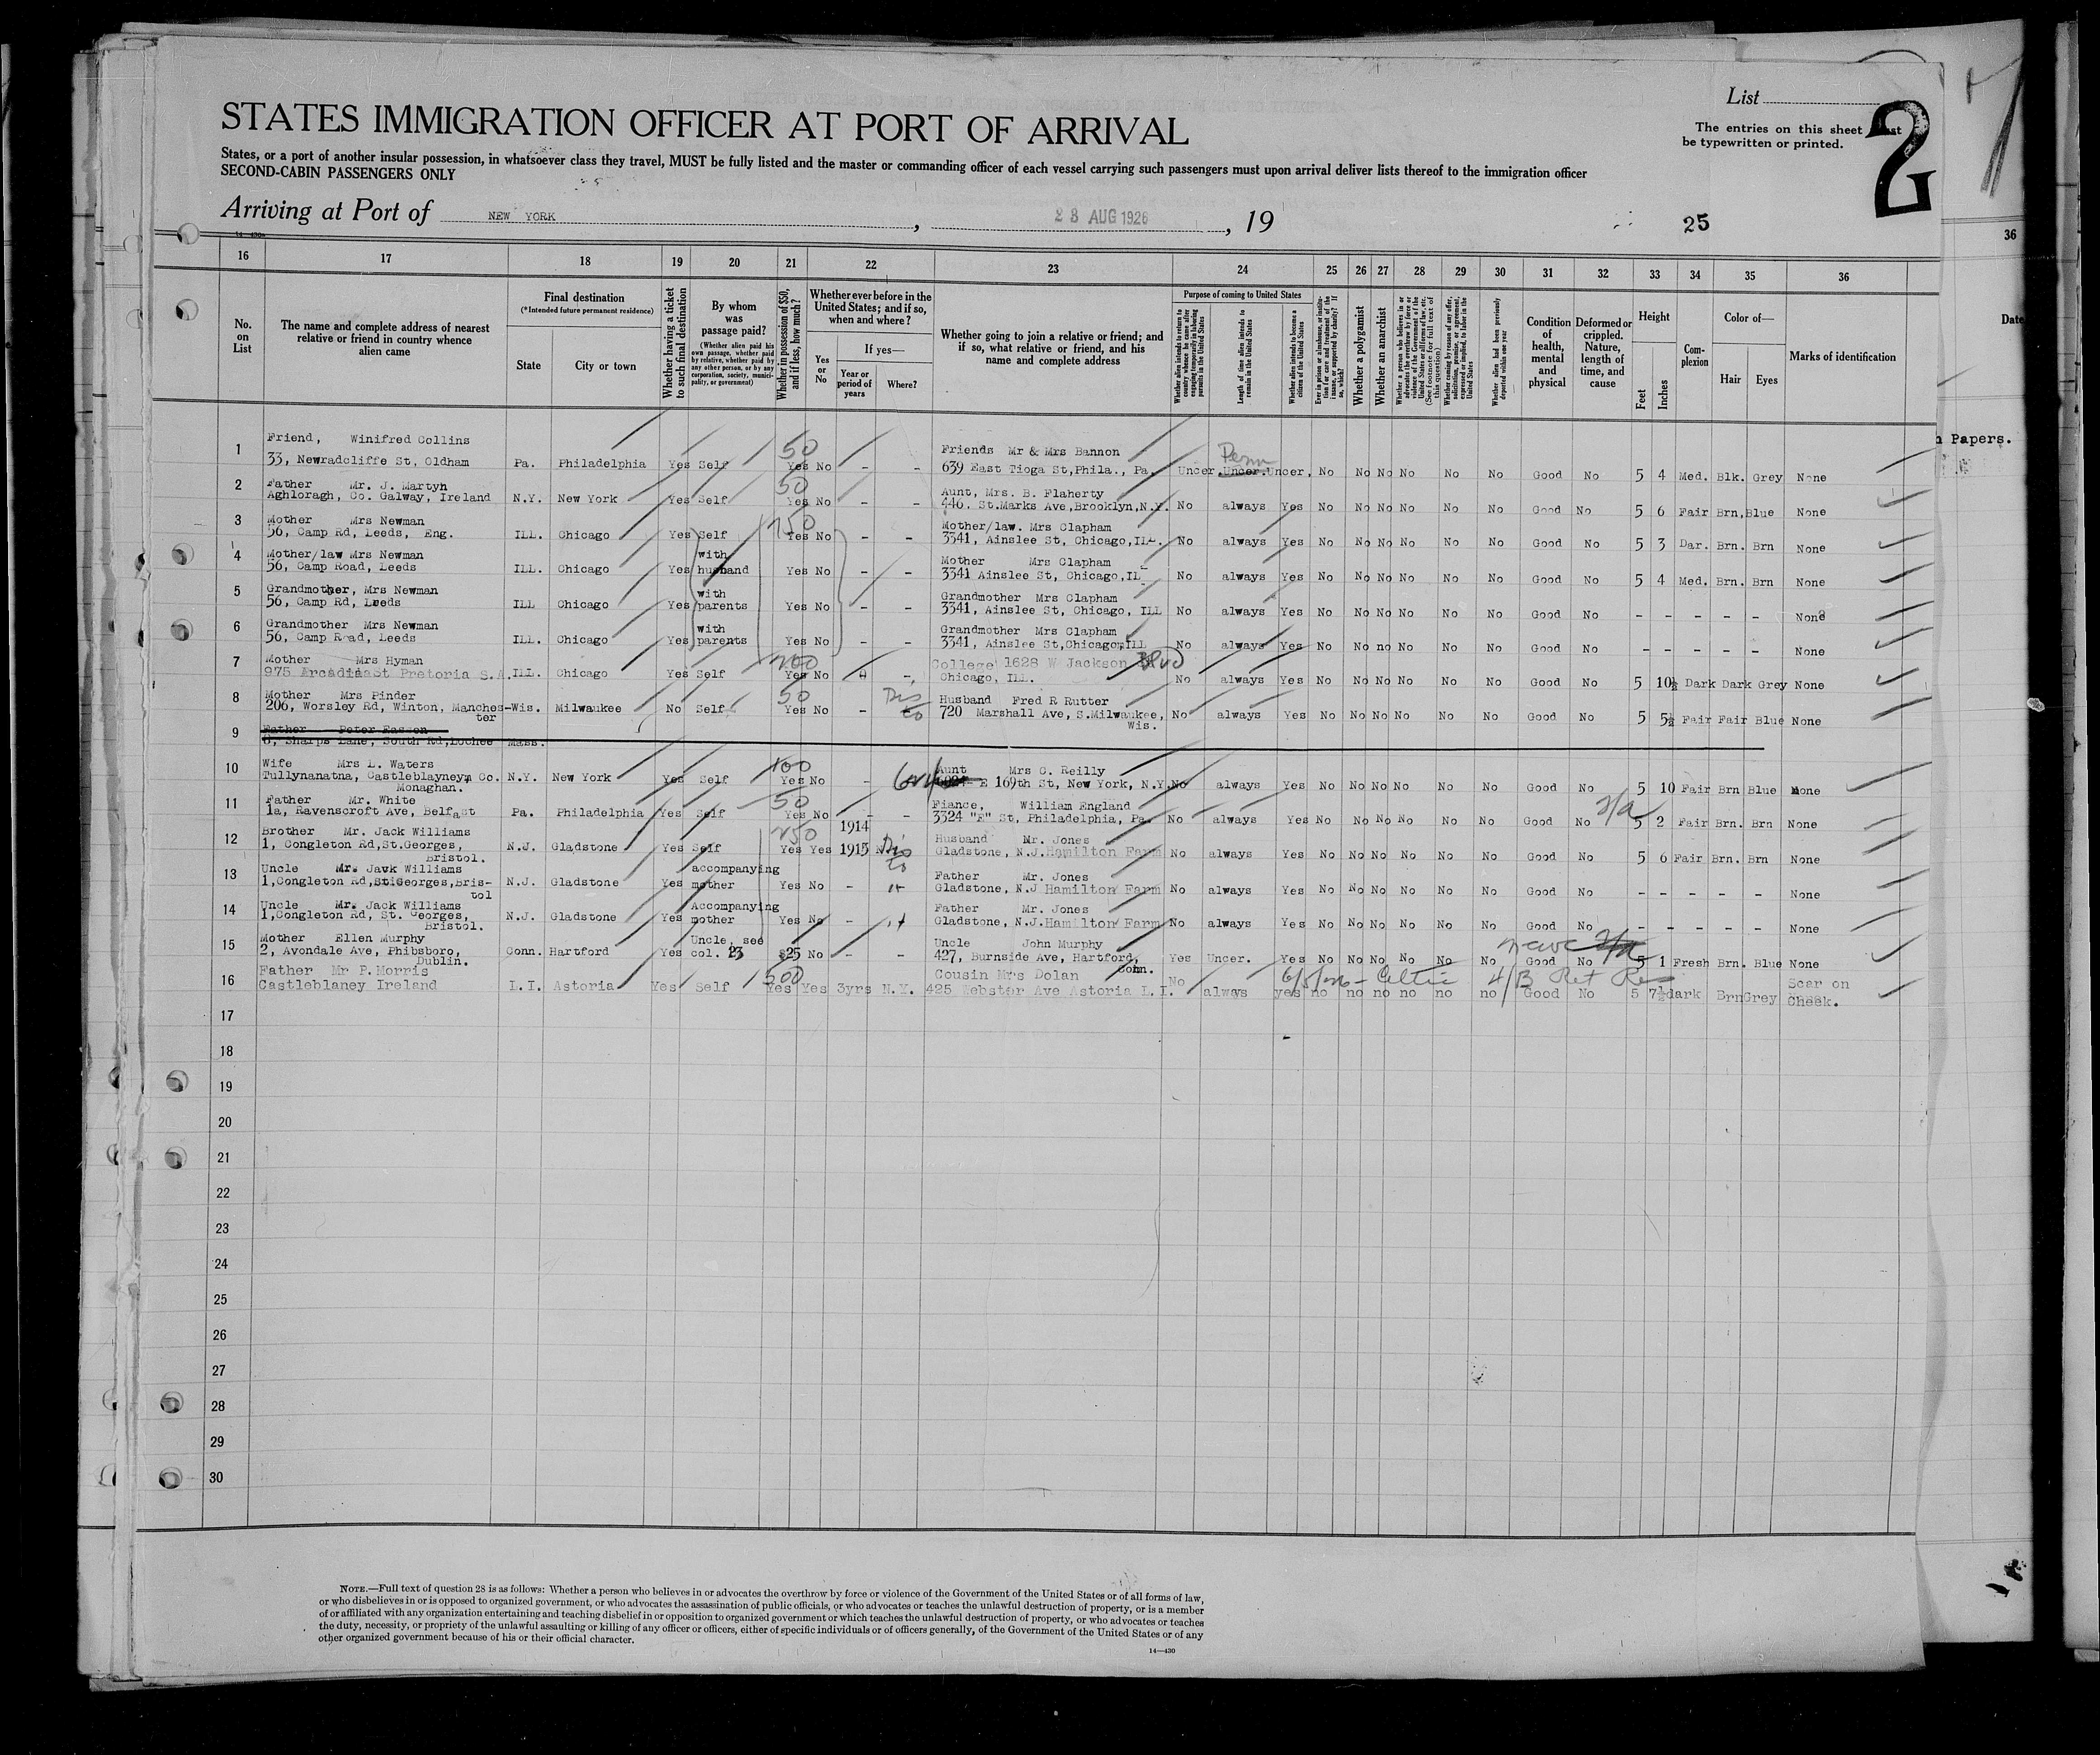 List
The entries on this sheet
be typewritten or printed.
2
STATES IMMIGRATION OFFICER AT PORT OF ARRIVAL
States, or a port of another insular possession, in whatsoever class they travel, MUST be fully listed and the master or commanding officer of each vessel carrying such passengers must upon arrival deliver lists thereof to the immigration officer
SECOND-CABIN PASSENGERS ONLY
Arriving at Port of NEW YORK, 23 AUG 1926, 19
25
16 17 18 19 20 21 22 23 24 25 26 27 28 29 30 31 32 33 34 35 36
No. on List
The name and complete address of nearest relative or friend in country whence alien came
Final destination
(*Intended future permanent residence)
State
City or town
Whether having a ticket to such final destination
By whom was passage paid?
(Whether alien paid his own passage, whether paid by relative, whether paid by any other person, or by any corporation, society, municipality, or government)
Whether in possession of $50, and if less, how much?
Whether ever before in the United States; and if so, when and where?
Yes or No
If yes—
Year or period of years
Where?
Whether going to join a relative or friend; and if so, what relative or friend, and his name and complete address
Purpose of coming to United States
Length of time alien intends to remain in the United States
Whether alien intends to become a citizen of the United States
Whether a polygamist
Whether an anarchist
Whether alien had been previously deported within one year
Condition of health, mental and physical
Deformed or crippled. Nature, length of time, and cause
Height
Feet
Inches
Complexion
Color of—
Hair
Eyes
Marks of identification
1 Friend, Winifred Collins 50 Friends Mr & Mrs Bannon
33, Newradcliffe St, Oldham Pa. Philadelphia Yes Self Yes No - - 639 East Tioga St, Phila., Pa. Uncer. Uncer. Uncer. No No No No No No Good No 5 4 Med. Blk. Grey None
2 Father Mr. J. Martyn 50 Aunt, Mrs. B. Flaherty
Aghloragh, Co. Galway, Ireland N.Y. New York Yes Self Yes No - - 446. St.Marks Ave, Brooklyn, N.Y. No always Yes No No No No No No Good No 5 6 Fair Brn, Blue None
3 Mother Mrs Newman 750 Mother/law. Mrs Clapham
56, Camp Rd, Leeds, Eng. ILL. Chicago Yes Self Yes No - - 3341, Ainslee St, Chicago, ILL. No always Yes No No No No No No Good No 5 3 Dar. Brn. Brn None
4 Mother/law Mrs Newman with Mother Mrs Clapham
56, Camp Road, Leeds ILL. Chicago Yes husband Yes No - - 3341 Ainslee St, Chicago, IL No always Yes No No No No No No Good No 5 4 Med. Brn. Brn None
5 Grandmother, Mrs Newman with Grandmother Mrs Clapham
56, Camp Rd, Leeds ILL Chicago Yes parents Yes No - - 3341, Ainslee St, Chicago, ILL No always Yes No No No No No No Good No - - - - - None
6 Grandmother Mrs Newman with Grandmother Mrs Clapham
56, Camp Road, Leeds ILL. Chicago Yes parents Yes No - - 3341, Ainslee St, Chicago, ILL No always Yes No No no No No No Good No - - - - - None
7 Mother Mrs Hyman 200 College 1628 W Jackson Blvd
975 Arcadia St Pretoria S.A. ILL. Chicago Yes Self Yes No - Chicago, ILL. No always Yes No No No No No No Good No 5 10½ Dark Dark Grey None
8 Mother Mrs Pinder 50 Husband Fred R Rutter
206, Worsley Rd, Winton, Manches- Wis. Milwaukee No Self Yes No - 720 Marshall Ave, S.Milwaukee, No always Yes No No No No No No Good No 5 5½ Fair Fair Blue None
ter Wis.
9 Father Peter Easson
6, Sharps Lane, South Rd, Lochee Mass.
10 Wife Mrs L. Waters 100 Aunt Mrs C. Reilly
Tullynanatna, Castleblayney, Co. N.Y. New York Yes Self Yes No - E 169th St, New York, N.Y. No always Yes No No No No No No Good No 5 10 Fair Brn Blue None
Monaghan.
11 Father Mr. White 50 Fiance, William England
1a, Ravenscroft Ave, Belfast Pa. Philadelphia Yes Self Yes No - - 3324 "E" St, Philadelphia, Pa. No always Yes No No No No No No Good No 5 2 Fair Brn. Brn None
12 Brother Mr. Jack Williams 250 1914 Husband Mr. Jones
1, Congleton Rd, St.Georges, N.J. Gladstone Yes Self Yes Yes 1915 Gladstone, N.J. Hamilton Farm No always Yes No No No No No No Good No 5 6 Fair Brn. Brn None
Bristol.
13 Uncle Mr. Jack Williams accompanying Father Mr. Jones
1, Congleton Rd, St.Georges, Bris- N.J. Gladstone Yes mother Yes No - Gladstone, N.J Hamilton Farm No always Yes No No No No No No Good No - - - - - None
tol
14 Uncle Mr. Jack Williams Accompanying Father Mr. Jones
1, Congleton Rd, St. Georges, N.J. Gladstone Yes mother Yes No - Gladstone, N.J. Hamilton Farm No always Yes No No No No No No Good No - - - - - None
Bristol.
15 Mother Ellen Murphy Uncle, see Uncle John Murphy
2, Avondale Ave, Phibsboro, Conn. Hartford Yes col. 23 $25 No - - 427, Burnside Ave, Hartford, Yes Uncer. Yes No No No No No No Good No 5 1 Fresh Brn. Blue None
Dublin. Conn.
16 Father Mr P. Morris 500 Cousin Mrs Dolan 6/5/26 - Celtic 4/B Ret Scar on
Castleblaney Ireland L.I. Astoria Yes Self Yes Yes 3yrs N.Y. 425 Webster Ave Astoria L.I. No always yes no no no no no no Good No 5 7½ dark Brn Grey Cheek.
17
18
19
20
21
22
23
24
25
26
27
28
29
30
NOTE.—Full text of question 28 is as follows: Whether a person who believes in or advocates the overthrow by force or violence of the Government of the United States or of all forms of law,
or who disbelieves in or is opposed to organized government, or who advocates the assassination of public officials, or who advocates or teaches the unlawful destruction of property, or is a member
of or affiliated with any organization entertaining and teaching disbelief in or opposition to organized government or which teaches the unlawful destruction of property, or who advocates or teaches
the duty, necessity, or propriety of the unlawful assaulting or killing of any officer or officers, either of specific individuals or of officers generally, of the Government of the United States or of any
other organized government because of his or their official character.
14—430
36
Date
Papers.